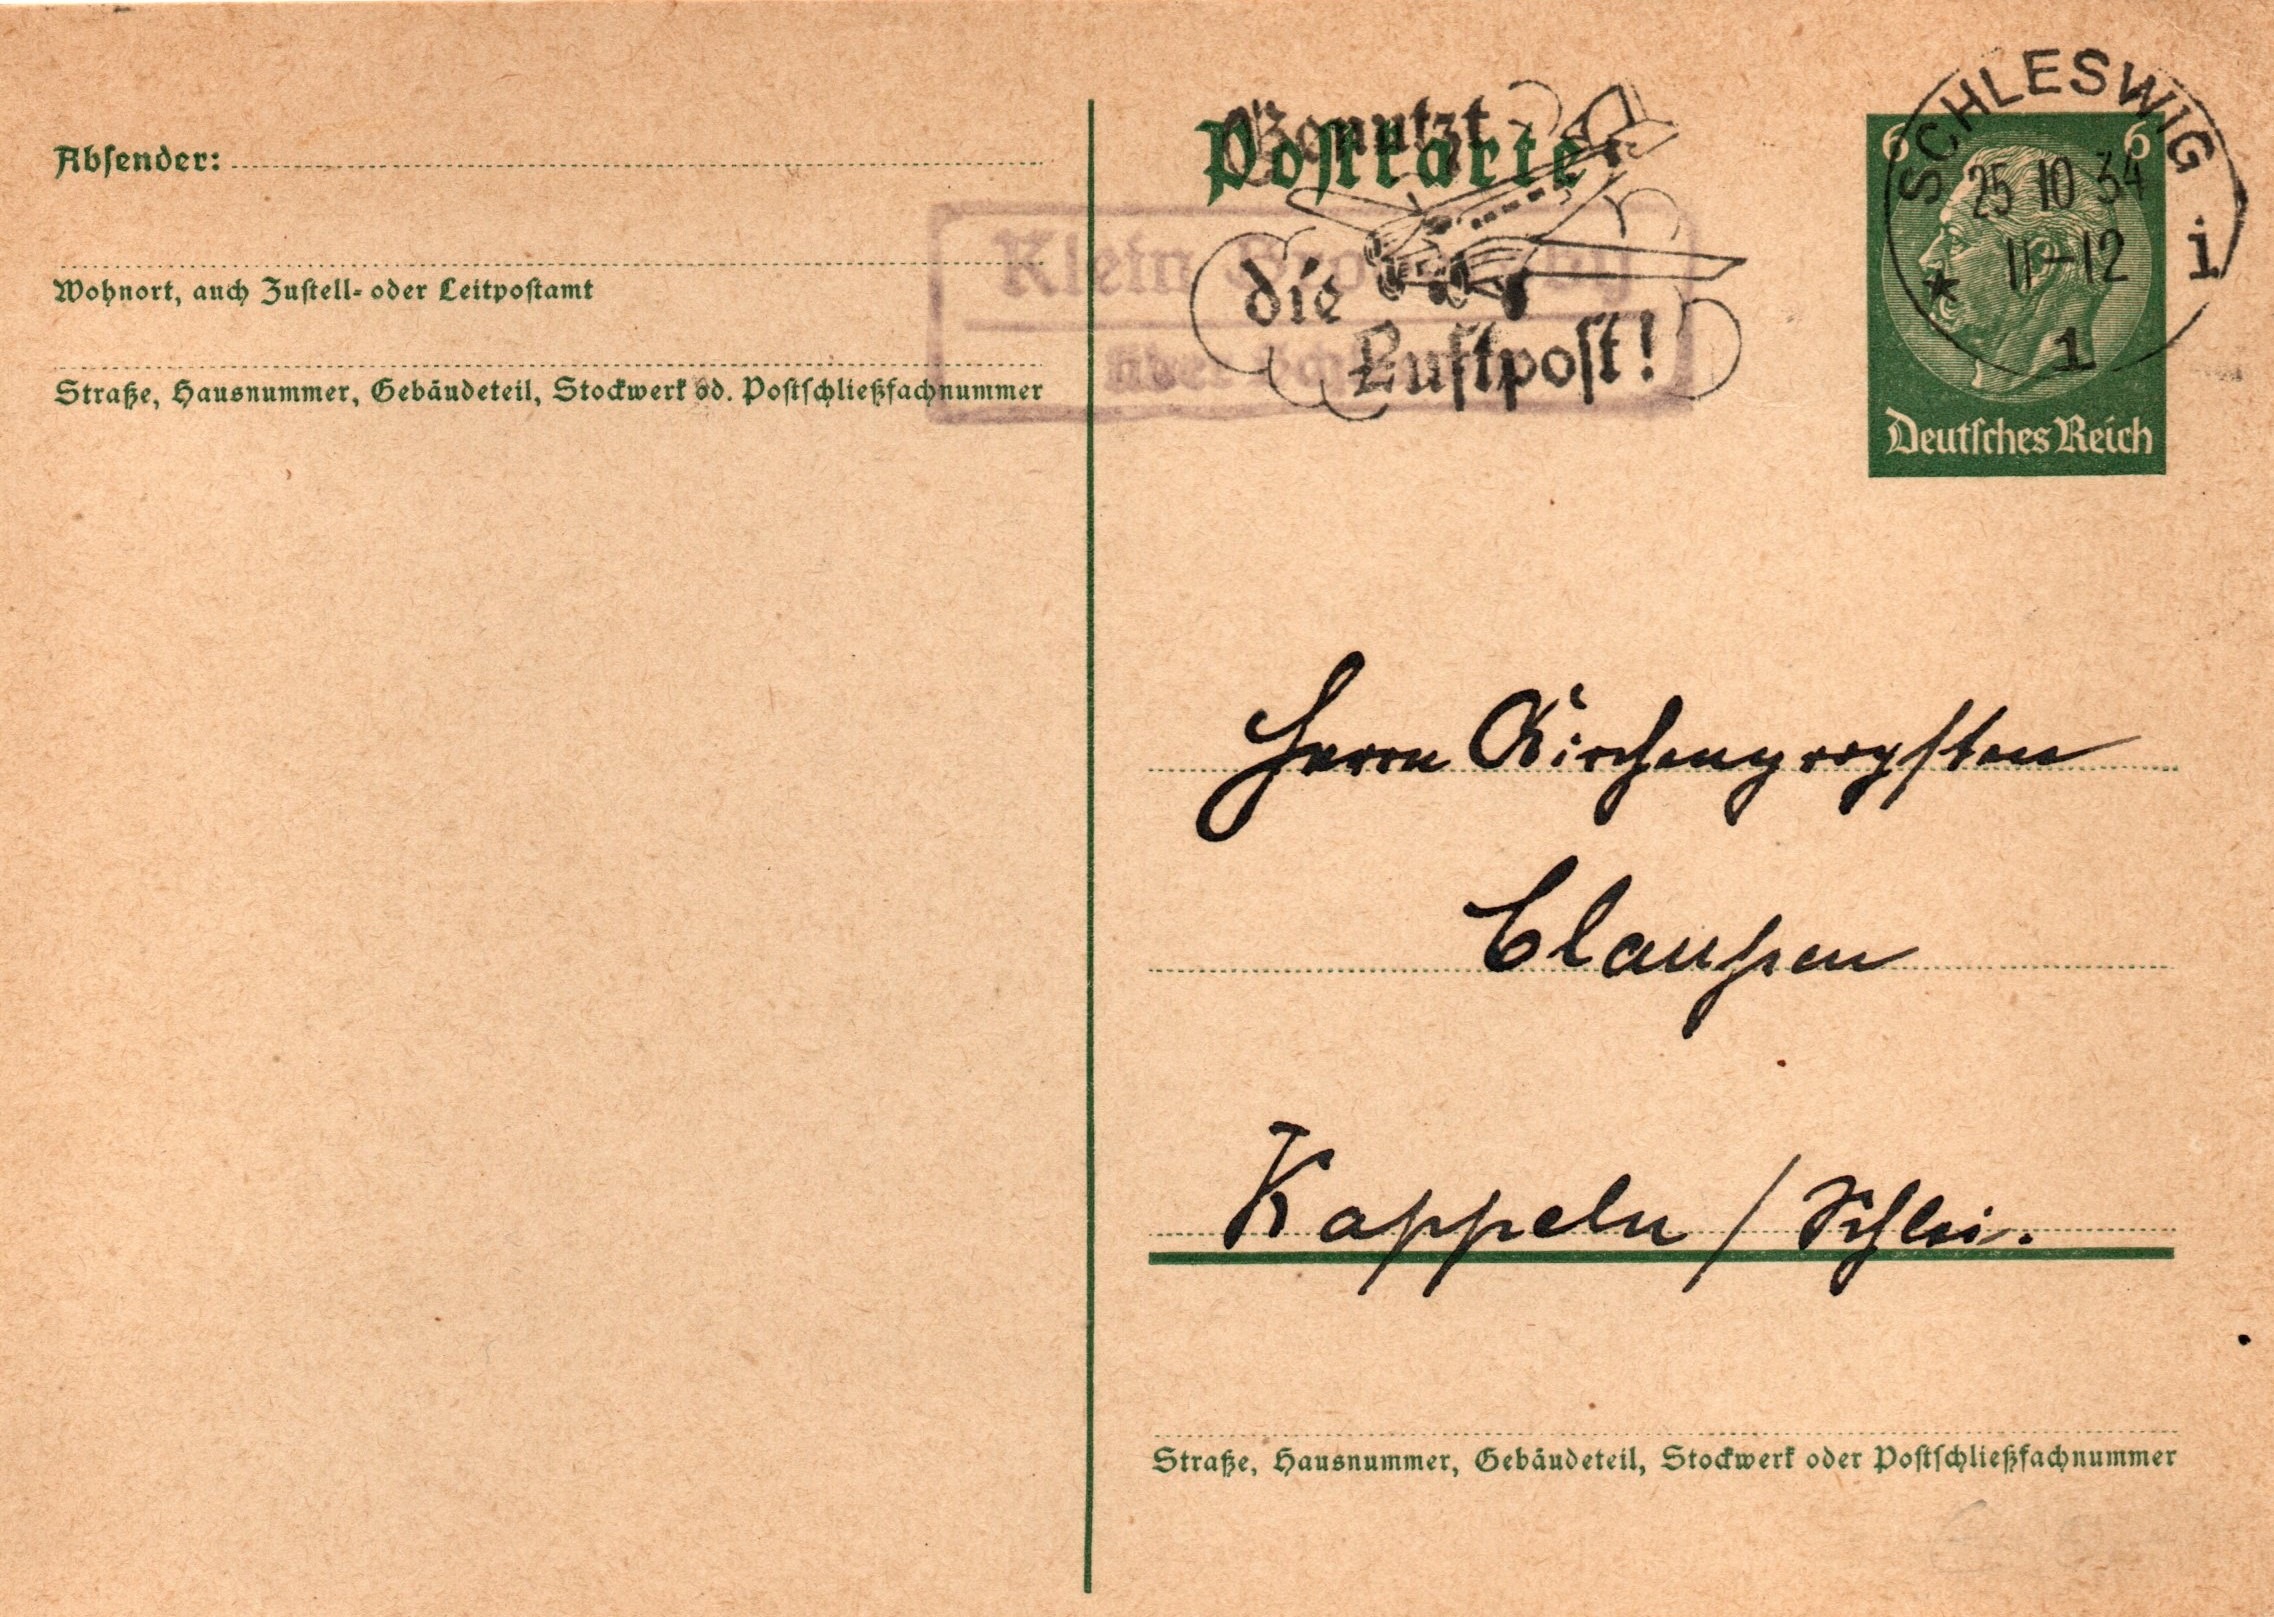 Absender:
Wohnort, auch Zustell- oder Leitpostamt
Straße, Hausnummer, Gebäudeteil, Stockwerk od. Postschließfachnummer
Postkarte
Benutzt
die
Luftpost!
Klein
über
SCHLESWIG
25 10 34
11-12
* 1 i
6 6
Deutsches Reich
Herrn Kirchenpropsten
Claussen
Kappeln / Schlei.
Straße, Hausnummer, Gebäudeteil, Stockwerk oder Postschließfachnummer